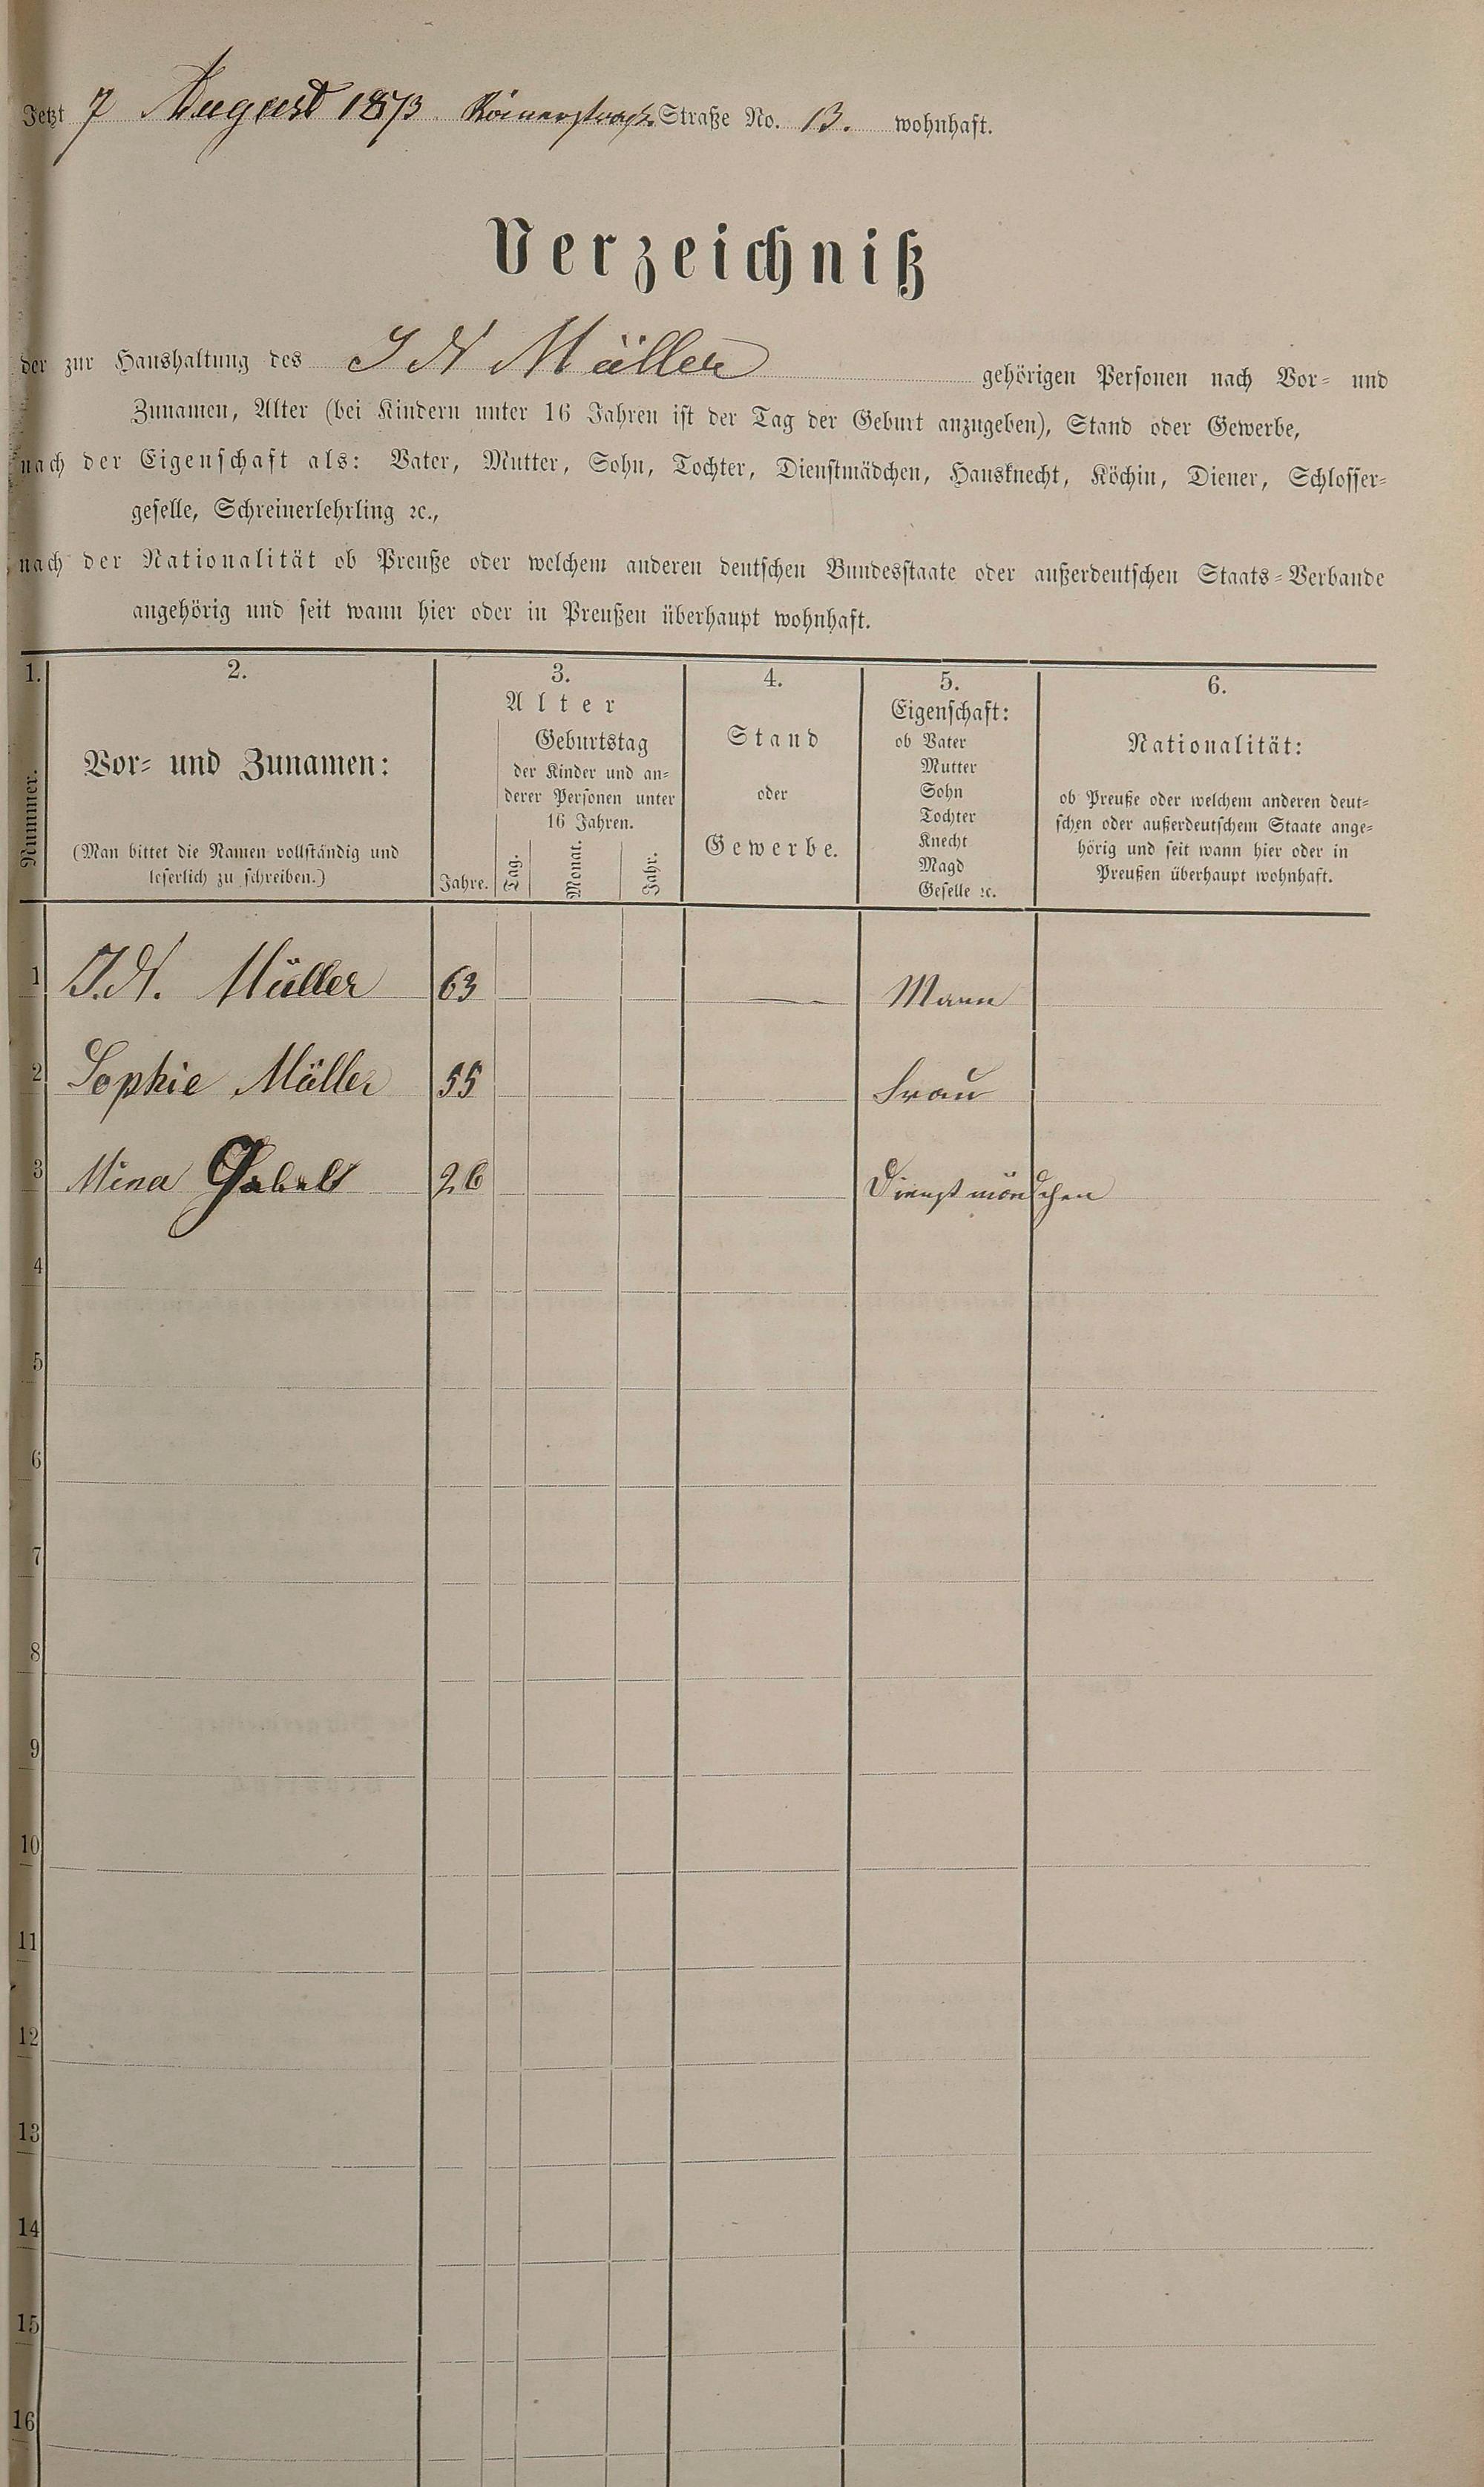 Jetzt 7 August 1873 Römerstraße Straße No. 13. wohnhaft.
Verzeichniß
der zur Haushaltung des J N Müller gehörigen Personen nach Vor- und
Zunamen, Alter (bei Kindern unter 16 Jahren ist der Tag der Geburt anzugeben), Stand oder Gewerbe,
nach der Eigenschaft als: Vater, Mutter, Sohn, Tochter, Dienstmädchen, Hausknecht, Köchin, Diener, Schlosser-
geselle, Schreinerlehrling ꝛc.,
nach der Nationalität ob Preuße oder welchem anderen deutschen Bundesstaate oder außerdeutschen Staats-Verbande
angehörig und seit wann hier oder in Preußen überhaupt wohnhaft.
1.
Nummer.
2.
Vor- und Zunamen:
(Man bittet die Namen vollständig und
leserlich zu schreiben.)
3.
Alter
Jahre.
Geburtstag
der Kinder und an-
derer Personen unter
16 Jahren.
Tag.
Monat.
Jahr.
4.
Stand
oder
Gewerbe.
5.
Eigenschaft:
ob Vater
Mutter
Sohn
Tochter
Knecht
Magd
Geselle ꝛc.
6.
Nationalität:
ob Preuße oder welchem anderen deut-
schen oder außerdeutschem Staate ange-
hörig und seit wann hier oder in
Preußen überhaupt wohnhaft.
1 J. N. Müller 63 — Mann
2 Sophie Müller 55 Frau
3 Mina 26 Dienstmädchen
4
5
6
7
8
9
10
11
12
13
14
15
16